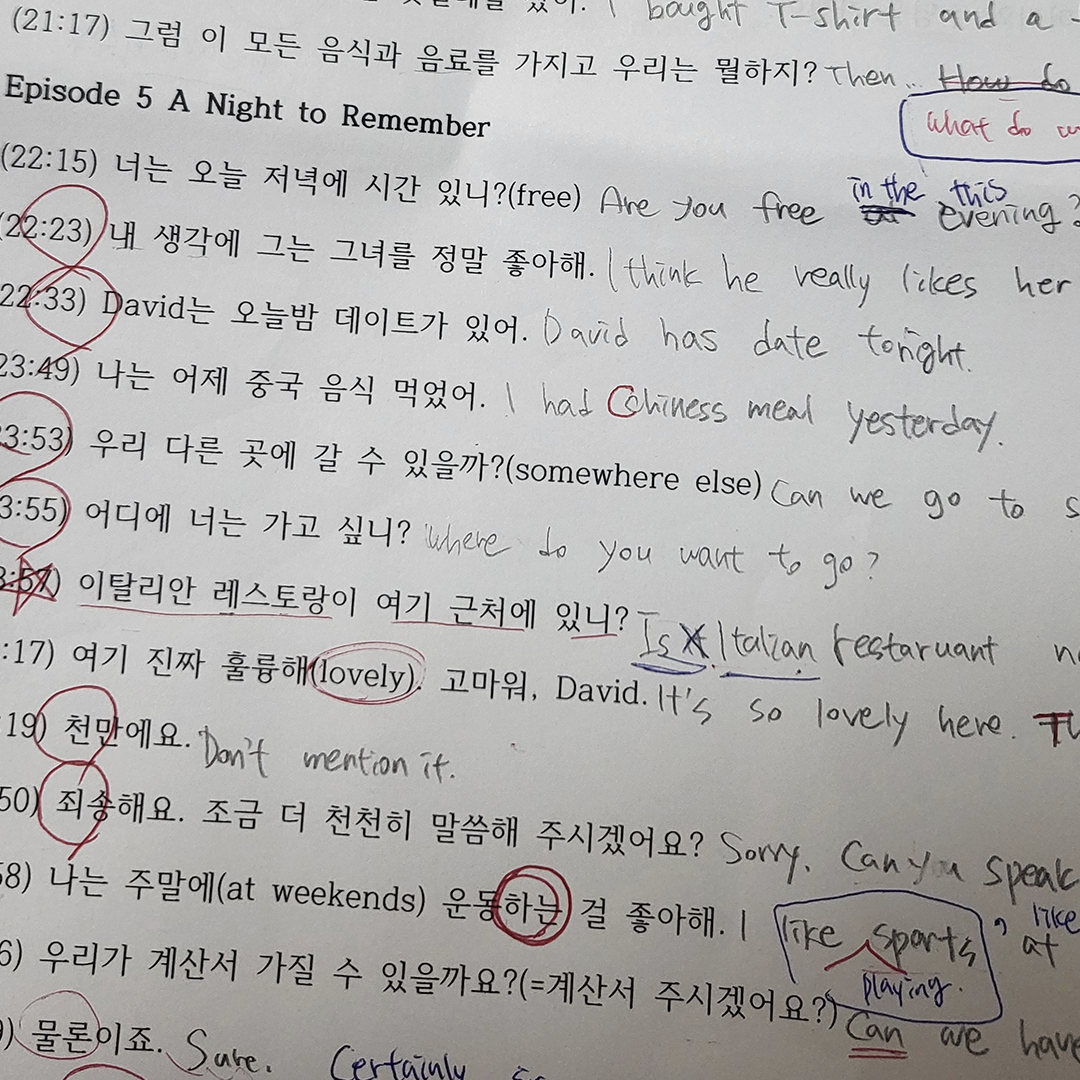 있어. I bought T-shirt and a
(21:17) 그럼 이 모든 음식과 음료를 가지고 우리는 뭘하지? Then... How do
What do
Episode 5 A Night to Remember
(22:15) 너는 오늘 저녁에 시간 있니?(free) Are you free in the this evening?
(22:23) 내 생각에 그는 그녀를 정말 좋아해. I think he really likes her
22:33) David는 오늘밤 데이트가 있어. David has date tonight.
23:49) 나는 어제 중국 음식 먹었어. I had Chiness meal yesterday.
3:53) 우리 다른 곳에 갈 수 있을까?(somewhere else) Can we go to s
3:55) 어디에 너는 가고 싶니? Where do you want to go?
3:57) 이탈리안 레스토랑이 여기 근처에 있니? Is Italian restaruant
:17) 여기 진짜 훌륭해(lovely). 고마워, David. It's so lovely here.
19) 천만에요. Don't mention it.
50) 죄송해요. 조금 더 천천히 말씀해 주시겠어요? Sorry. Can you speak
58) 나는 주말에(at weekends) 운동하는 걸 좋아해. I like sports, like at
playing.
6) 우리가 계산서 가질 수 있을까요?(=계산서 주시겠어요?) Can we have
) 물론이죠. Sure. Certainly